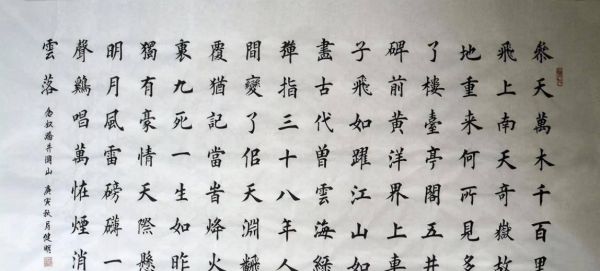 參天萬木千百里
飛上南天奇嶽故
地重來何所見多
了樓臺亭閣五井
碑前黃洋界上車
子飛如躍江山如
畫古代曾雲海綠
彈指三十八年人
間變了佀天淵翻
覆猶記當旹烽火
裏九死一生如昨
獨有豪情天際懸
明月風雷磅礴一
聲鷄唱萬恠煙消
雲落
念奴嬌井岡山 庚寅秋月健明